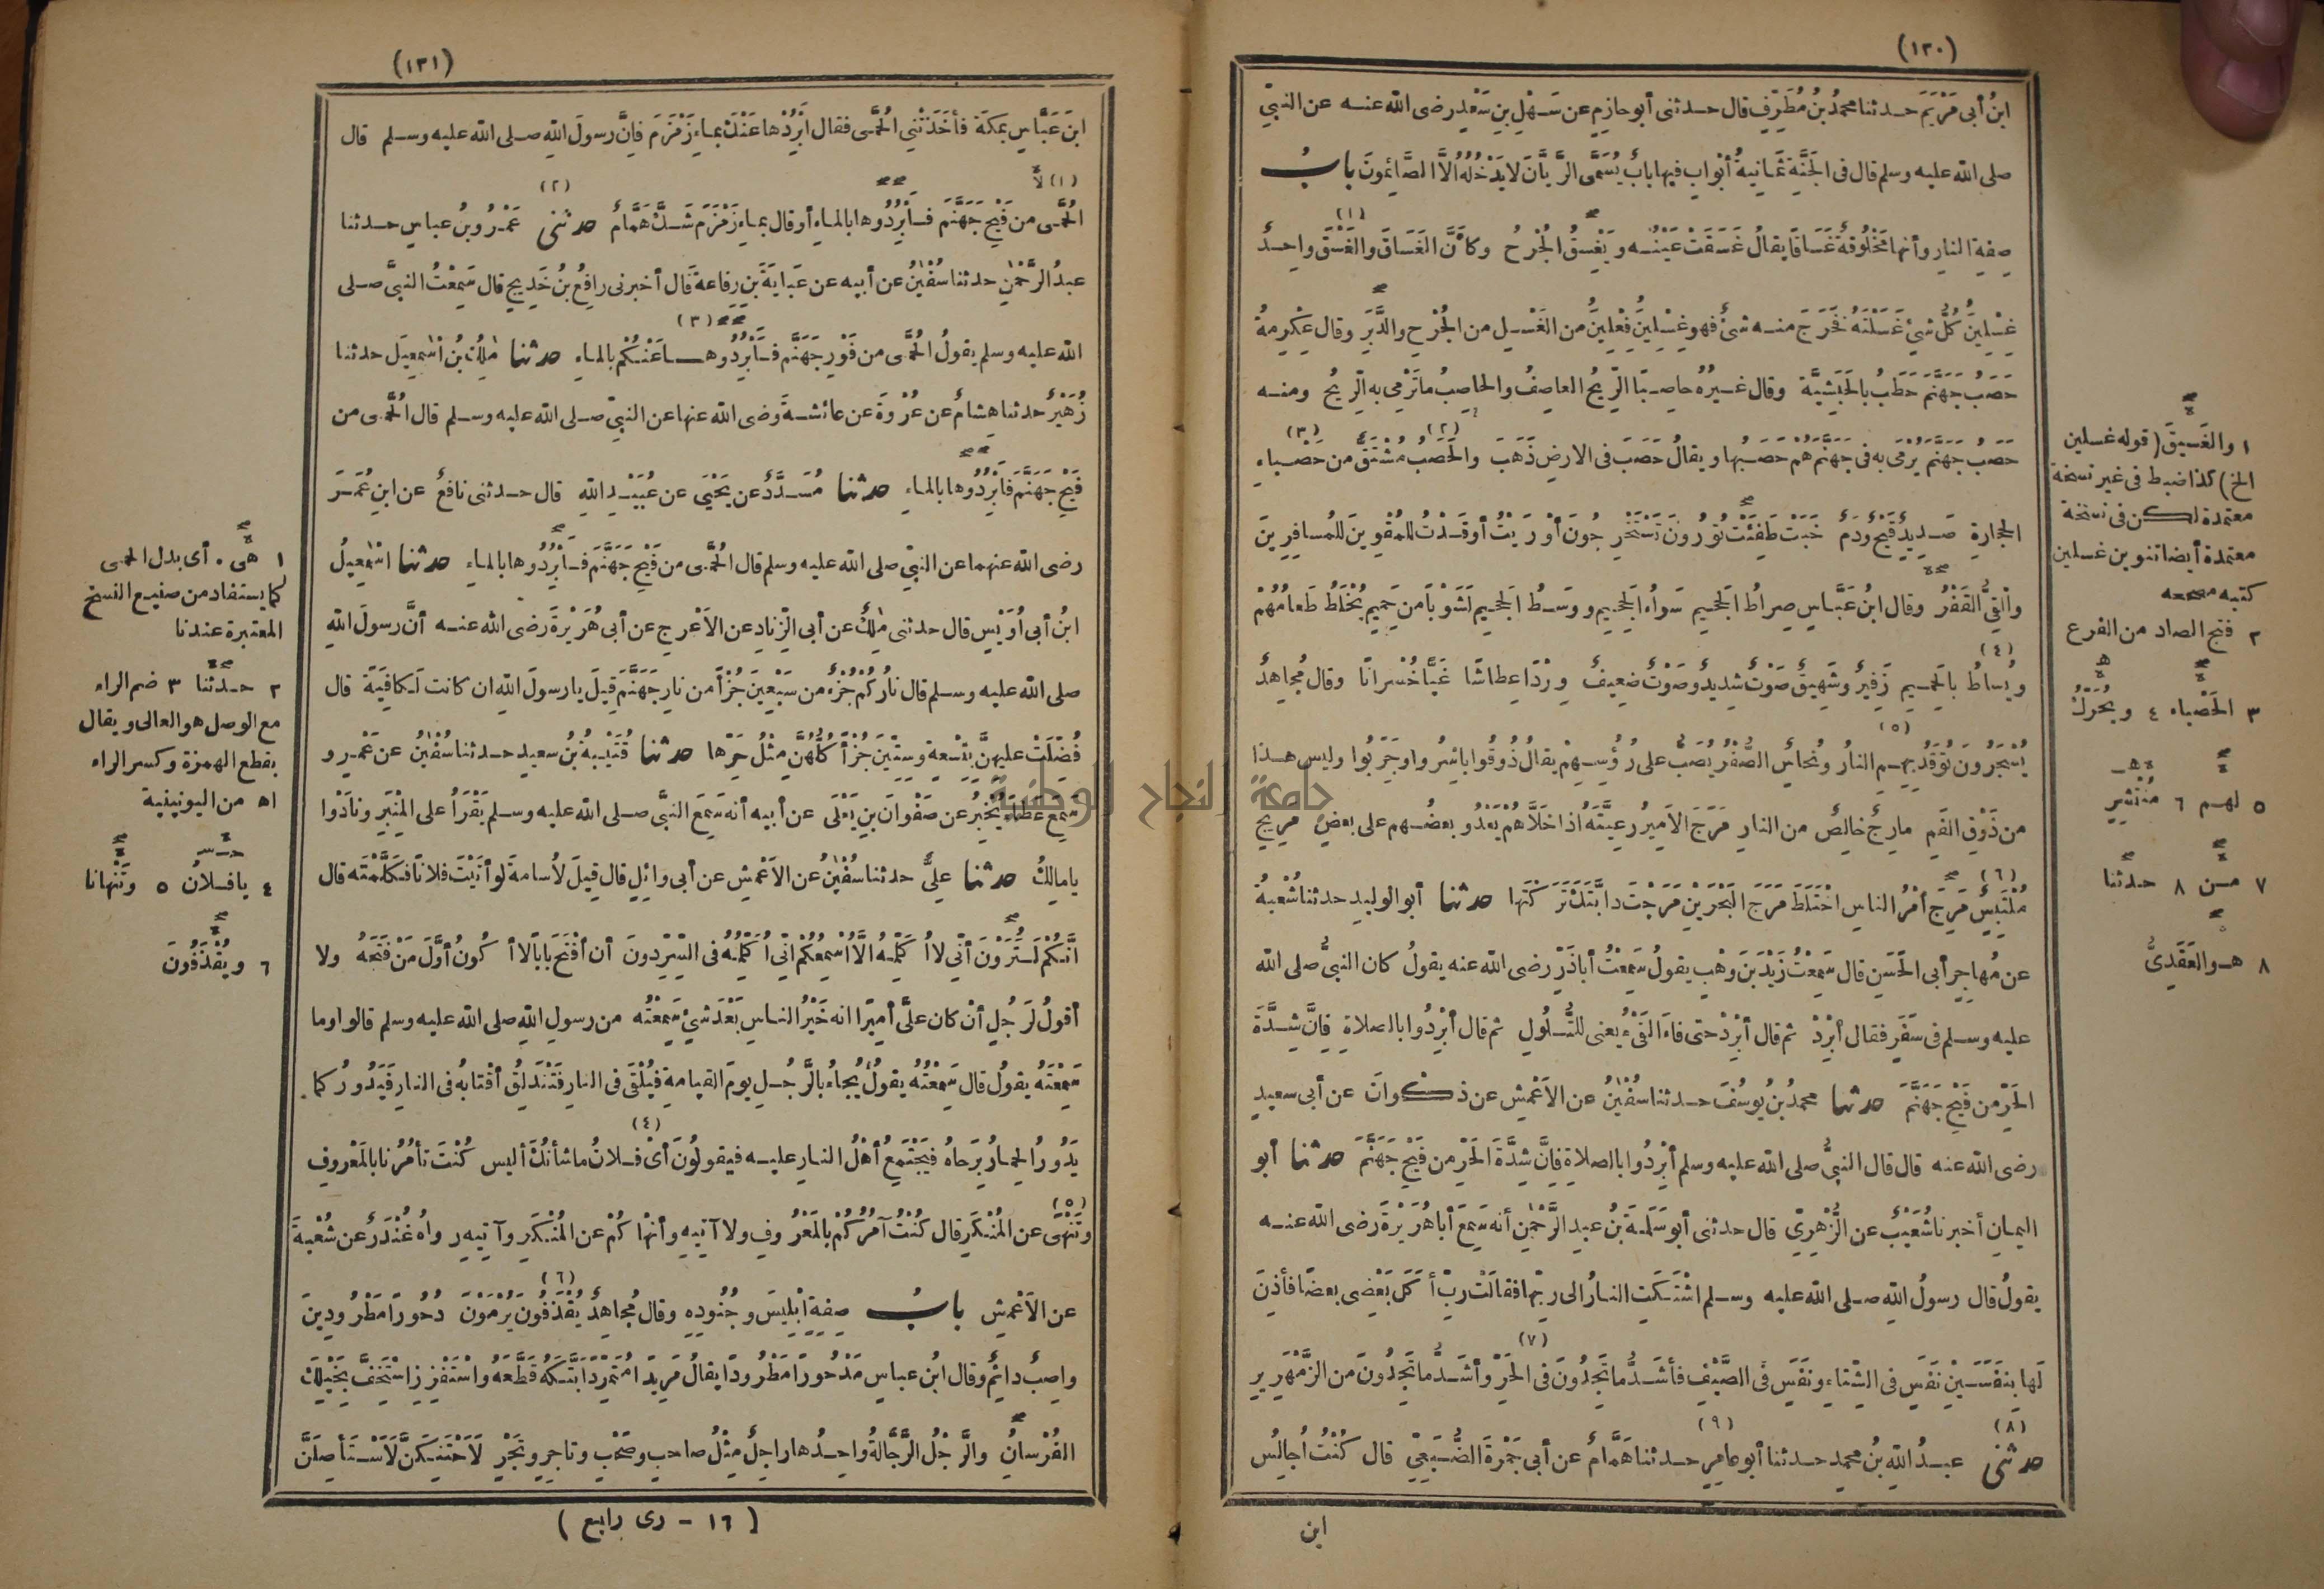 (١٣٠)
ابنُ أبى مَرْيَمَ حدثنا محمدُ بنُ مُطَرِّفٍ قال حدثنى أبو حازمٍ عن سَهْلِ بنِ سَعْدٍ رضى الله عنه عن النبىِّ
صلى الله عليه وسلم قال فى الجَنَّةِ ثَمانِيَةُ أبْوابٍ فيها بابٌ يُسَمَّى الرَّيَّانَ لا يَدْخُلُهُ إلاَّ الصَّائِمُونَ بابُ
صِفةِ النارِ وأنها مَخْلُوقةٌ غَسَاقًا يقالُ غَسَقَتْ عَيْنُه ويَغْسِقُ الجُرْحُ وكأنَّ الغَسَاقَ والغَسْقَ واحِدٌ
غِسْلِينُ كُلُّ شىْءٍ غَسَلْتَهُ فَخَرَجَ منه شىْءٌ فهو غِسْلِينُ فِعْلِينُ من الغَسْلِ من الجُرْحِ والدَّبَرِ وقال عِكْرِمةُ
حَصَبُ جَهَنَّمَ حَطَبُ بالحَبَشِيَّةِ وقال غيرُهُ حاصِبًا الرِّيحُ العاصِفُ والحاصِبُ ما تَرْمِى به الرِّيحُ ومنه
حَصَبُ جَهَنَّمَ يُرْمَى به فى جَهَنَّمَ هُمْ حَصَبُها ويقالُ حَصَبَ فى الارضِ ذَهَبَ والحَصَبُ مُشْتَقٌّ من حَصْباءِ
الحِجارةِ صَدِيدٌ قَيْحٌ ودَمٌ خَبَتْ طَفِئَتْ تُورُونَ تَسْتَخْرِجُونَ أوْرَيْتُ أوقَدْتُ للمُقْوِينَ للمُسافِرِينَ
والقِىُّ القَفْرُ وقال ابنُ عَبَّاسٍ صِراطُ الجَحِيمِ سَواءُ الجَحِيمِ ووَسَطُ الجَحِيمِ لَشَوْبًا مِنْ حَمِيمٍ يُخْلَطُ طَعامُهُمْ
ويُساطُ بالحَمِيمِ زَفِيرٌ وشَهِيقٌ صَوْتٌ شَدِيدٌ وصَوْتٌ ضَعِيفٌ وِرْدًا عِطاشًا غَيًّا خُسْرانًا وقال مُجاهِدٌ
يُسْجَرُونَ تُوقَدُ بِهِمِ النارُ ونُحاسٌ الصُّفْرُ يُصَبُّ على رُؤُسِهِمْ يقالُ ذُوقُوا باشِرُوا وجَرِّبُوا وليس هذا
من ذَوْقِ الفَمِ مارِجٌ خالِصٌ من النارِ مَرَجَ الأَمِيرُ رَعِيَّتَهُ اذا خَلاَّهُمْ يَعْدُو بعضُهم على بعضٍ مَرِيجٍ
مُلْتَبِسٌ مَرِجَ أمْرُ الناسِ اخْتَلَطَ مَرَجَ البَحْرَيْنِ مَرَجْتَ دابَّتَكَ تَرَكْتَها حدثنا أبو الوليدِ حدثنا شُعْبةُ
عن مُهاجِرٍ أبى الحَسَنِ قال سَمِعْتُ زَيْدَ بنَ وَهْبٍ يقولُ سَمِعْتُ أباذَرٍّ رضى الله عنه يقولُ كان النبىُّ صلى الله
عليه وسلم فى سَفَرٍ فقال أبْرِدْ ثم قال أبْرِدْ حتى فاءَ الفَىْءُ يعنى للتُّلُولِ ثم قال أبْرِدُوا بالصلاةِ فانَّ شِدَّةَ
الحَرِّ من فَيْحِ جَهَنَّمَ حدثنا محمدُ بنُ يوسُفَ حدثنا سُفْيٰنُ عن الأَعْمَشِ عن ذكوانَ عن أبى سعيدٍ
رضى الله عنه قال قال النبىُّ صلى الله عليه وسلم أبْرِدُوا بالصلاةِ فانَّ شِدَّةَ الحَرِّ من فَيْحِ جَهَنَّمَ حدثنا أبو
اليمانِ أخبرنا شُعَيْبٌ عن الزُّهْرِىِّ قال حدثنى أبو سَلَمةَ بنُ عبدِ الرَّحْمٰنِ أنه سَمِعَ أبا هُرَيْرةَ رضى الله عنه
يقولُ قال رسولُ اللهِ صلى الله عليه وسلم اشْتَكَتِ النارُ الى رَبِّها فقالَتْ رَبِّ أكَلَ بَعْضِى بعضًا فأذِنَ
لَها بنَفَسَيْنِ نَفَسٍ فى الشِّتاءِ ونَفَسٍ فى الصَّيْفِ فأشَدُّ ما تَجِدُونَ فى الحَرِّ وأشَدُّ ما تَجِدُونَ من الزَّمْهَرِيرِ
حدثنى عبدُ اللهِ بنُ محمدٍ حدثنا أبو عامرٍ حدثنا هَمَّامٌ عن أبى جَمْرةَ الضُّبَعِىِّ قال كُنْتُ أُجالِسُ
ابن
١ والغَسِيقَ (قوله غسلين
الخ) كذا ضبط فى غير نسخة
معتمدة لكن فى نسخة
معتمدة أيضا تنوين غسلين
كتبه مصححه
٢ فتح الصاد من الفرع
٣ الحَصْباء ٤ ويُحَرَّكُ
٥ لهم ٦ مُنْتَشِرٍ
٧ من ٨ حدثنا
٨ هو العَقَدِىُّ
(١٣١)
ابنَ عَبَّاسٍ بمكةَ فأخَذَتْنِى الحُمَّى فقال ابْرُدْها عَنْكَ بماءِ زَمْزَمَ فانَّ رسولَ اللهِ صلى الله عليه وسلم قال
الحُمَّى من فَيْحِ جَهَنَّمَ فابْرُدُوها بالماءِ أو قال بماءِ زَمْزَمَ شَكَّ هَمَّامٌ حدثنى عَمْرُو بنُ عباسٍ حدثنا
عبدُ الرَّحْمٰنِ حدثنا سُفْيٰنُ عن أبيه عن عَبايَةَ بنِ رِفاعةَ قال أخبرنى رافِعُ بنُ خَدِيجٍ قال سَمِعْتُ النبىَّ صلى
الله عليه وسلم يقولُ الحُمَّى من فَوْرِ جَهَنَّمَ فابْرُدُوها عَنْكُمْ بالماءِ حدثنا مٰلِكُ بنُ اسْمٰعِيلَ حدثنا
زُهَيْرٌ حدثنا هِشامٌ عن عُرْوةَ عن عائشةَ رضى الله عنها عن النبىِّ صلى الله عليه وسلم قال الحُمَّى من
فَيْحِ جَهَنَّمَ فابْرُدُوها بالماءِ حدثنا مُسَدَّدٌ عن يَحْيَى عن عُبَيْدِ اللهِ قال حدثنى نافعٌ عن ابنِ عُمَرَ
رضى الله عنهما عن النبىِّ صلى الله عليه وسلم قال الحُمَّى من فَيْحِ جَهَنَّمَ فابْرُدُوها بالماءِ حدثنا اسْمٰعِيلُ
ابنُ أبى أُوَيْسٍ قال حدثنى مٰلِكٌ عن أبى الزِّنادِ عن الأَعْرجِ عن أبى هُرَيْرةَ رضى الله عنه أنَّ رسولَ اللهِ
صلى الله عليه وسلم قال نارُكُمْ جُزْءٌ من سَبْعِينَ جُزْأً من نارِ جَهَنَّمَ قِيلَ يا رسولَ اللهِ ان كانت لَكافِيَةً قال
فُضِّلَتْ عليهِنَّ بِتِسْعةٍ وسِتِّينَ جُزْأً كُلُّهُنَّ مِثْلُ حَرِّها حدثنا قُتَيْبةُ بنُ سعيدٍ حدثنا سُفْيٰنُ عن عَمْرٍو
سَمِعَ عَطاءً يُخْبِرُ عن صَفْوانَ بنِ يَعْلَى عن أبيه أنه سَمِعَ النبىَّ صلى الله عليه وسلم يَقْرَأُ على المِنْبَرِ ونادَوْا
يا مالِكُ حدثنا عَلِىٌّ حدثنا سُفْيٰنُ عن الأَعْمَشِ عن أبى وائِلٍ قال قِيلَ لأُسامةَ لو أتَيْتَ فلانًا فكَلَّمْتَه قال
انَّكُمْ لَتُرَوْنَ أنِّى لا أُكَلِّمُه الاَّ أُسْمِعُكُمْ انِّى أُكَلِّمُهُ فى السِّرِّ دونَ أن أفْتَحَ بابًا لا أكُونُ أوَّلَ مَنْ فَتَحَهُ ولا
أقولُ لرَجُلٍ أنْ كان عَلَىَّ أميرًا انه خَيْرُ الناسِ بَعْدَ شىْءٍ سَمِعْتُه من رسولِ اللهِ صلى الله عليه وسلم قالوا وما
سَمِعْتَهُ يقولُ قال سَمِعْتُهُ يقولُ يُجاءُ بالرَّجُلِ يومَ القيامةِ فيُلْقَى فى النارِ فتَنْدَلِقُ أقْتابُه فى النارِ فيَدُورُ كما
يَدُورُ الحِمارُ بِرَحاهُ فيَجْتَمِعُ أهْلُ النارِ عليه فيقولُونَ أىْ فلانُ ما شأنُكَ أليس كُنْتَ تأمُرُنا بالمَعْروفِ
وتَنْهَى عن المُنْكَرِ قال كُنْتُ آمُرُكُمْ بالمَعْرُوفِ ولا آتيهِ وأنْهاكُمْ عن المُنْكَرِ وآتيهِ رواهُ غُنْدَرٌ عن شُعْبةَ
عن الأَعْمَشِ بابُ صِفةِ ابْلِيسَ وجُنُودِهِ وقال مُجاهِدٌ يُقْذَفُونَ يُرْمَوْنَ دُحُورًا مَطْرُودِينَ
واصِبٌ دائِمٌ وقال ابنُ عباسٍ مَدْحُورًا مَطْرُودًا يقالُ مَرِيدًا مُتَمَرِّدًا بَتَّكَهُ قَطَّعَهُ واسْتَفْزِزْ اسْتَخِفَّ بخَيْلِكَ
الفُرْسانُ والرَّجْلُ الرَّجَّالةُ واحِدُها راجِلٌ مِثْلُ صاحبٍ وصَحْبٍ وتاجِرٍ وتَجْرٍ لَأَحْتَنِكَنَّ لَأَسْتَأصِلَنَّ
(١٦ - رى رابع)
١ هى . أى بدل الحمى
كما يستفاد من صنيع النسخ
المعتبرة عندنا
٢ حدثنا ٣ ضم الراء
مع الوصل هو العالى ويقال
بقطع الهمزة وكسر الراء
اه من اليونينية
٤ يا فلانُ ٥ وتَنْهانا
٦ ويُقْذَفُونَ
جامعة النجاح الوطنية